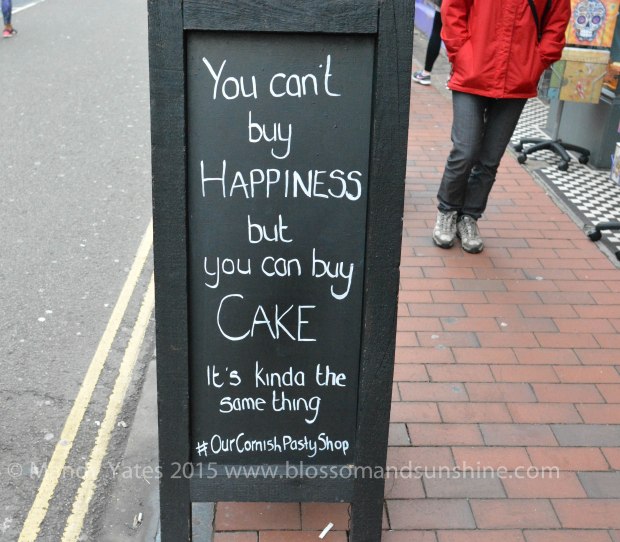 You can't
buy
HAPPINESS
but
you can buy
CAKE
It's kinda the
same thing
#OurCornishPastyShop
© Mandy Yates 2015 www.blossomandsunshine.com